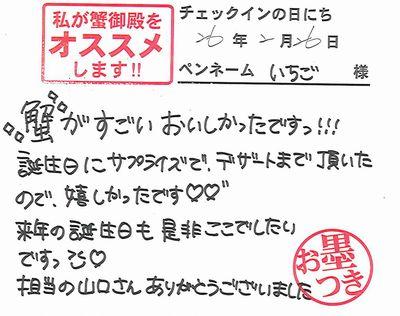 私が蟹御殿を
オススメ
します!!
チェックインの日にち
26年2月26日
ペンネーム いちご 様
蟹がすごいおいしかったですっ!!!
誕生日にサプライズで、デザートまで頂いた
ので、嬉しかったです♡♡"
来年の誕生日も是非ここでしたい
ですっ♡
担当の山口さんありがとうございました
お墨つき